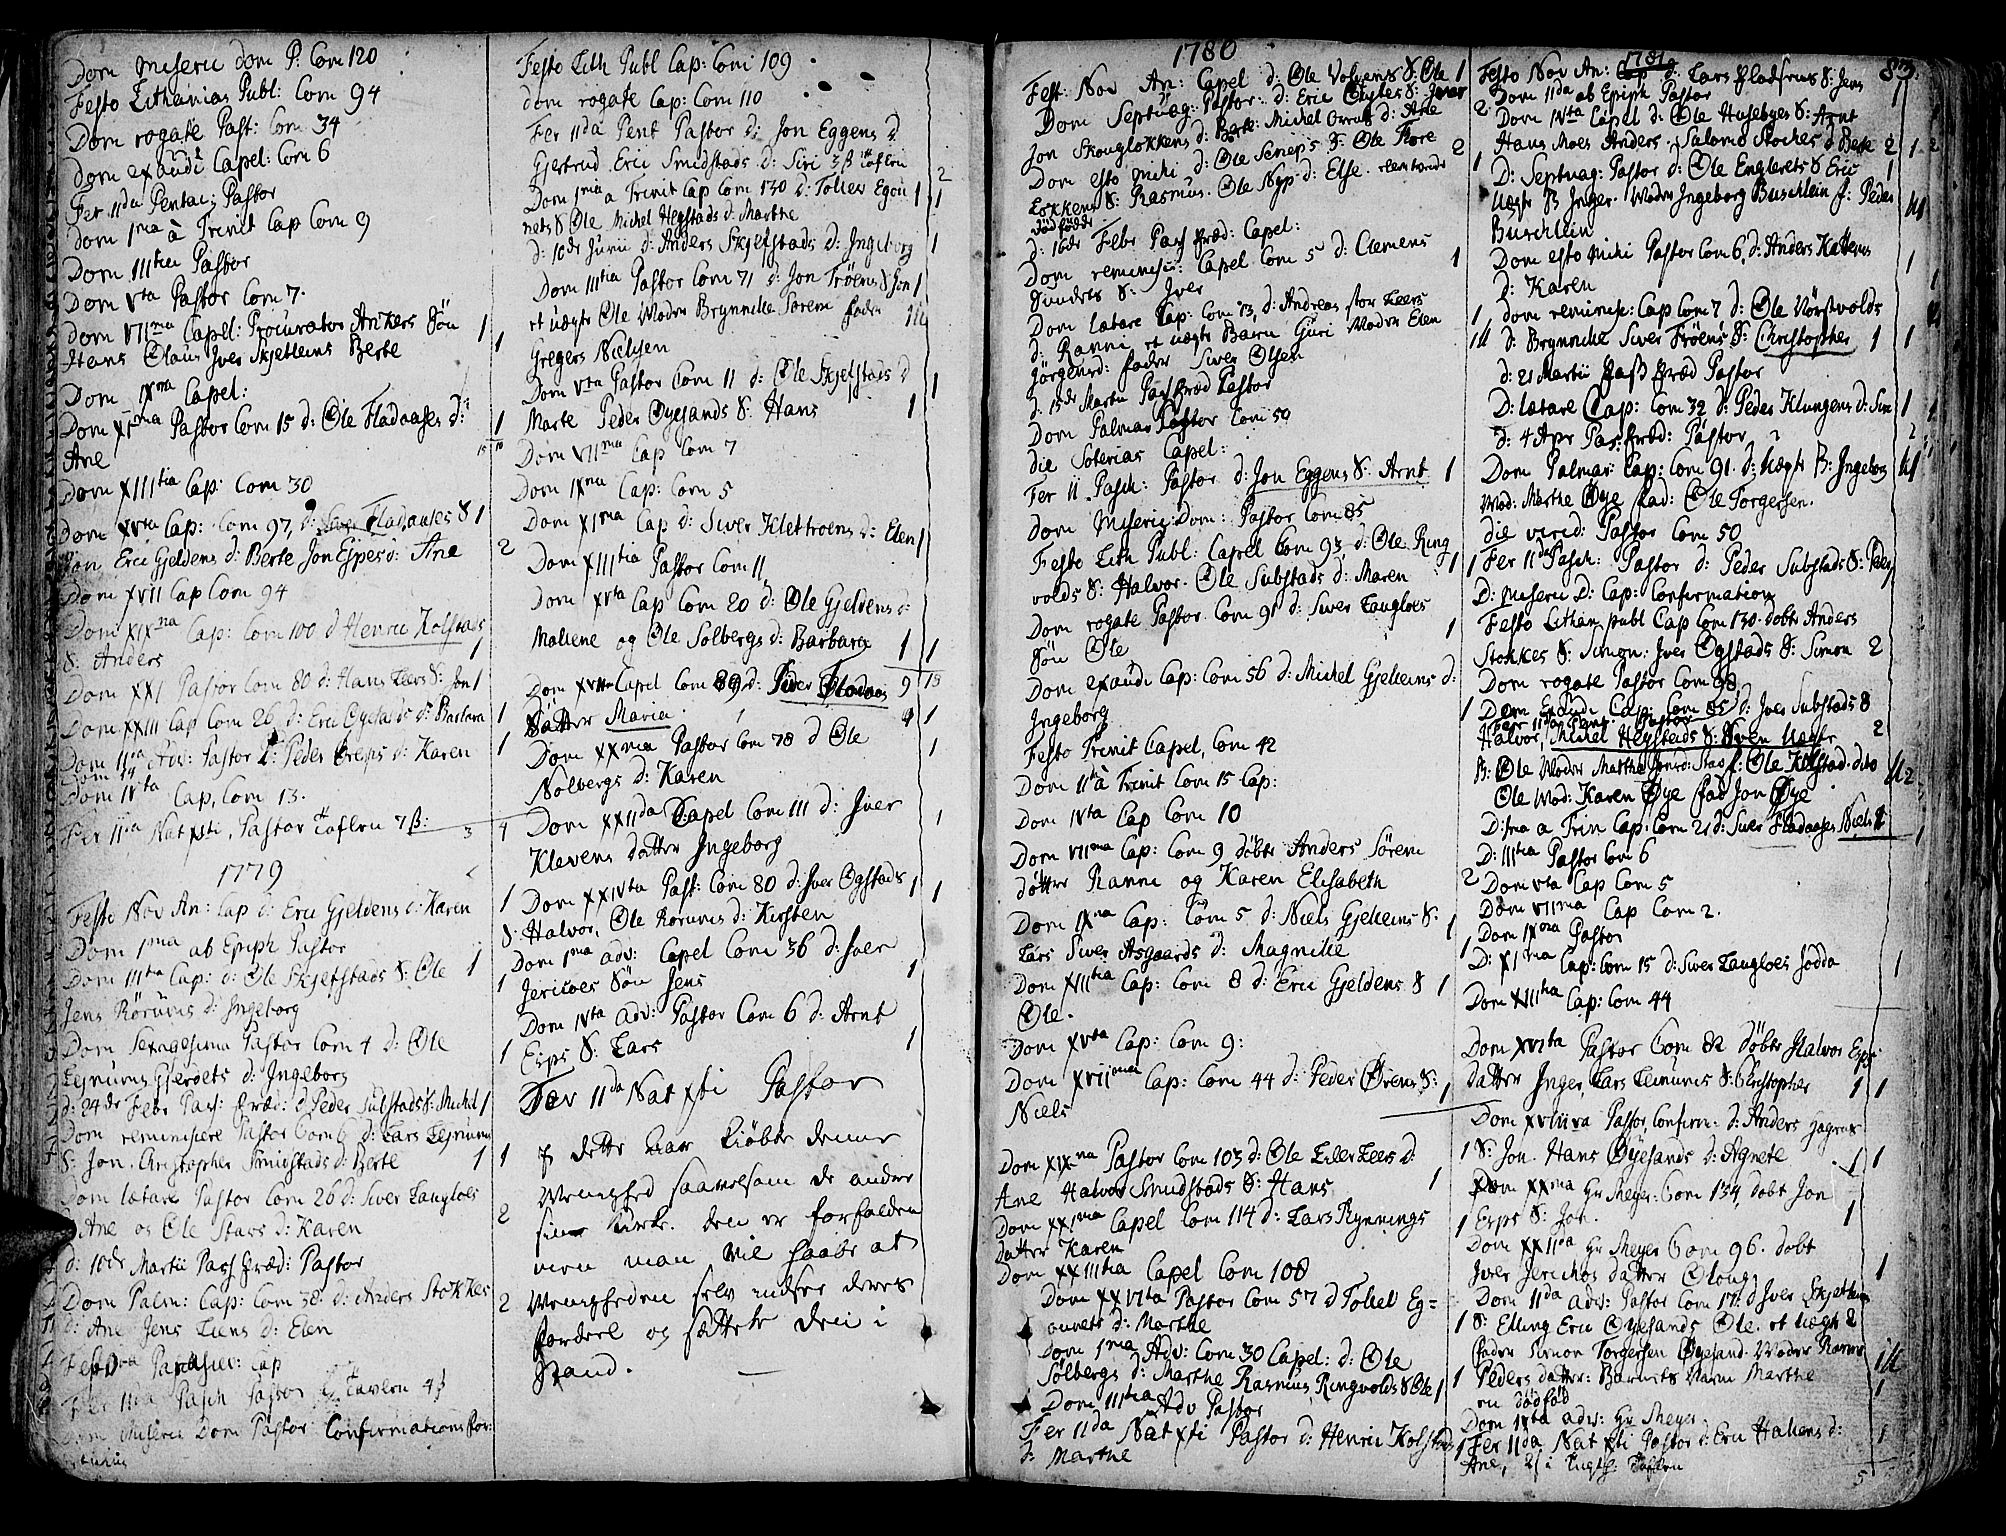 Dom Miseric dom P: Com 120
Festo Lithanias Publ: Com 94
Dom rogate Past: Com 34
Dom exaudi Capel: Com 6
Fer 11da Pentac: Pastor
Dom 1ma à Trinit Cap Com 9
Dom 111tia Pastor
Dom Vta Pastor Com 7.
Dom V11ma Capel: Procurator Ankers Søn
Hans Olaus Iver Skjetleins Berte 1
Dom 1Xma Capel:
Dom X1ma Pastor Com 15 d: Ole Fladaases d: 1
Ane
Dom X111tia Cap: Com 30
Dom XVta Cap: Com 97, d: Fladaases S 1
Jon Eric Gjeldens d: Berte Jon Espes d: Ane 2
Dom XV11 Cap Com 94
Dom X1Xna Cap: Com 100 d Henric Kolstads
S: Anders 1
Dom XX1 Pastor Com 80 d: Hans Leers S: Jon 1
Dom XX111 Cap Com 26 d: Eric Øyesands d: Barbara 1
Dom 11da Adv: Pastor d: Peder Øreps d: Karen 1
Com 14
Dom 1Vta Cap, Com 13.
Fer 11da Nat xsti, Pastor Taflen 7 ß: 3 4
1779
Festo Nov An: Cap d: Eric Gjeldens d: Karen 1
Dom 1ma ab Epiph Pastor
Dom 111tia Cap: d: Ole Skjefstads S: Ole 1
Jens Rørums d: Ingeborg 1
Dom Sexagesima Pastor Com 4 d: Ole
Lejrums Gjerdets d: Ingeborg 1
d: 24de Febr Pass Præd: d Peder Substads S: Michel 1
Dom reminiscere Pastor Com 6 d: Lars Lejrums
S: Jon. Christopher Smidstads d: Berte 1 1
Dom lætare Pastor Com 26 d: Siver Langloes
d: Ane og Ole Stavs d: Karen 2
d: 10de Martii Pass Præd: Pastor
Dom Palm: Cap: Com 38 d: Anders Stokkes
d: Ane Jens Liens d: Elen 2
Cap
Fer 11da Pasch Pastor Tavlen 4 ß
Dom Miseric Dom Pastor Confirmations for:
Festo Lith Publ Cap: Com 109
dom rogate Cap: Com 110
Fer 11da Pent Pastor d: Jon Eggens d
Gjertrud. Eric Smidstads d: Siri 3 ß Taflen 2
Dom 1ma a Trinit Cap Com 130 d: Tolier Egge 1 1
nets S Ole Michel Hegstads d: Marthe
d: 10de Junii d: Anders Skjefstads d: Ingeborg 1
Dom 111tia Pastor Com 71 d: Jon Frøens S Jon 1
et uægte Ole Moder Brynnille Sørem fader
Gregers Nielsen
Dom Vta Pastor Com 11 d: Ole Skjefstads d 1
Marte Peder Øyesands S: Hans 1
Dom V11ma Cap Com 7
Dom 1Xna Cap: Com 5
Dom X1ma Cap d: Siver Klettroens d: Elen 1
Dom X111tia Pastor Com 11
Dom XVta Cap Com 20 d: Ole Gjeldens d:
Malene og Ole Solbergs d: Barbara 1 1
Dom XV11ma Capel Com 89 d: Siver Fladaas 9 18
datter Maria. 1
Dom XXma Pastor Com 78 d Ole 1
Solbergs d: Karen
Dom XX11da Capel Com 111 d: Iver 1
Klevens datter Ingeborg
Dom XX1Vta Past: Com 80 d: Iver Øgstads 1 1
S: Halvor, Ole Rørums d: Kirsten
Dom 1ma adv: Capel Com 36 d: Iver
Jericoes Søn Jens 1
Dom 1Vta Adv: Pastor Com 6 d: Arnt
Erps S: Lars 1
Fer 11da Nat xsti Pastor
I dette Aar kiøbte denne
Menighed saavelsom de andre
sin Kirke. den er forfalden
men man vil haabe at
Menigheden selv indsee deres
fordeel og sætter den i
Stand.
1780
Fest: Nov An: Capel d: Ole Volvens S: Ole 1
Dom Septuag: Pastor: d: Eric Øystes S: Iver
Jon Skougløkkens d: Berte: Michel Grrut d: Ane
Dom esto mihi d: Ole Seneps S: Ole Store 2
Løkkens S: Rasmus. Ole Nyp d: Else.
dødfødde
d: 16de Febr Pass præd: Capel:
Dom reminisc: Capel Com 5 d: Clemens 1
Sundets S: Iver
Dom lætare Cap: Com 13, d: Andreas stor Leers
d: Ranni et uægte Barn Guri Moder Elen
Jørgensd: fader Siver Olsen
d. 15de Martii Pass præd Pastor
Dom Palmar Pastor Com 50
die Soterias Capel:
Fer 11 Pasch: Pastor d: Jon Eggens S: Arnt 1
Dom Miseric: Dom: Pastor Com 85
Festo Lith Publ: Capel Com 93, d: Ole Ring
volds S: Halvor. Ole Substads d: Maren 1
Dom rogate Pastor Com 91 d: Siver Langloes
Søn Ole 1
Dom exaudi Cap: Com 56 d: Michel Gjelleins d:
Ingeborg
Festo Trinit Capel, Com 42
Dom 11da à Trinit Com 15 Cap:
Dom 1Vta Cap Com 10
Dom V11ma Cap: Com 9 døbte Anders Sørem
døtter Ranni og Karen Elisabeth 2
Dom 1Xna Cap: Com 5 d: Niels Gjelleins S: 1
Lars Siver Asgaards d: Magnille 1
Dom X111tia Cap: Com 8 d: Eric Gjeldens S 1
Ole.
Dom XVta Cap: Com 9:
Dom XV11ma Cap: Com 44 d: Peder Ørens S: 1
Niels
Dom X1Xna Pastor Com 103 d: Ole Liller Leers d
Ane Halvor Smidstads S: Hans 1 1
Dom XX1ma Capel Com 114 d: Lars Rynnings
datter Karen 1
Dom XX111tia Capel Com 108
Dom XXV1ta Pastor Com 57 d Tollef Eg=
ganets d: Marthe 1
Dom 1ma Adv: Com 30 Capel: d: Ole
Solbergs d: Marthe Rasmus Ringvolds S Ole 1 1
Dom 111tia Adv Pastor
Fer 11da Nat xsti Pastor d: Henric Kolstads 1
d: Marthe
1781
83.
Festo Nov An: Cap d: Lars Fladsens S: Jens 1
Dom 11da ab Epiph Pastor
Dom 1Vta Capel d: Ole Husebyes S: Arnt
Hans Moes Anders. Salomo Stockes d Berte 2
D: Septuag: Pastor d: Ole Englerets S Eric 1
uægte B Inger. Moder Ingeborg Buschlein f: Peder
Buschlein
Dom esto mihi Pastor Com 6, d: Anders Kattems
d: Karen 1
dom reminisc: Cap Com 7 d: Ole Vørstvolds
d: Brynnille Siver Frøens S: Christopher 1 1
d: 21 Martii Pass præd Pastor
D: lætare Cap: Com 32 d: Peder Klungens d: Siri 1
d: 4 Apr Pas præd: Pastor
Dom Palmar: Cap: Com 91. d: uægte B: Ingeborg
Mod: Marthe Øye fad: Ole Torgersen.
die virid: Pastor Com 50
Fer 11da Pasch: Pastor d: Peder Substads S: Peder
D: Miseric D: Cap: Confirmation
Festo Lithan publ Cap Com 130 døbte Anders
Stokkes S: Simon: Iver Øgstads S: Simon 2
Dom rogate Pastor Com 98
Dom Exaudi Cap: Com 85 d: Iver Substads S
Fer: 11da Pent: Pastor
Halvor, Michel Hegstads S: Sven uægte 2
B: Ole Moder Marthe f: Ole Kolstad dito
Ole Mod: Karen Øye fad Jon Øye
D: 1ma a Trin Cap: Com 21 d: Siver Fladaases Niels
D: 111tia Pastor Com 6
Dom Vta Cap Com 5
Dom V11ma Cap Com 2.
Dom 1Xna Pastor
D: X1ma Cap: Com 15 d: Siver Langloes Jødda 1
Dom X111tia Cap: Com 44
Dom XV1ta Pastor Com 82 døbte Halvor Erps
datter Inger, Lars Lejrums S: Christopher 1 1
Dom XV111va Pastor, Confirm: d: Anders Hagens
S: Jon. Hans Øyesands d: Agnete 1 1
Dom XXma Hr Meyer: Com 134 døbt Jon
Erps S: Jon. 1
Dom XX11da Hr Meyer Com 96. døbt
Iver Jerichos datter Oloug 1
Dom 11da Adv: Pastor Com 17: d Iver Skjetlein
S: Elling Eric Øyesands Ole. et uægte
fader Simon Torgersen Øyesand. Moder Karen
Peders datter: Barnets Navn Marthe
en dødfød 1
Dom 1Vta adv: Hr Meyer
Fer 11da Nat xsti Pastor d: Eric Hallens d: 1
Ane, 2 ß i Tugth: Taflen
5